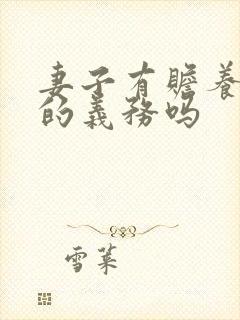 妻子有赡养
的義務吗
雪菜